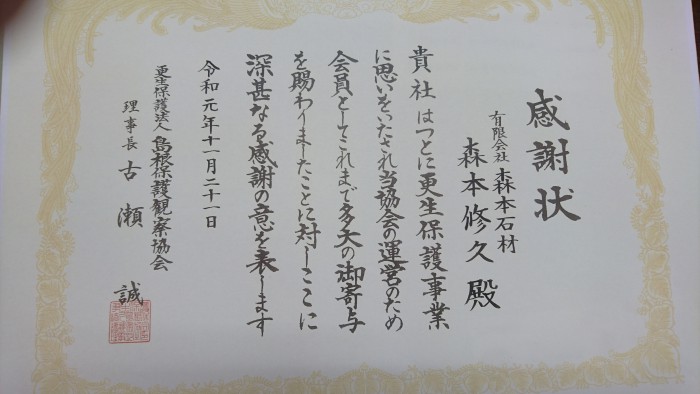 感謝状
有限会社 森本石材
森本修久 殿
貴社はつとに更生保護事業
に思いをいたされ当協会の運営のため
会員としてこれまで多大の御寄与
を賜わりましたことに対しここに
深甚なる感謝の意を表します
令和元年十一月二十一日
更生保護法人 島根保護観察協会
理事長 古瀬 誠